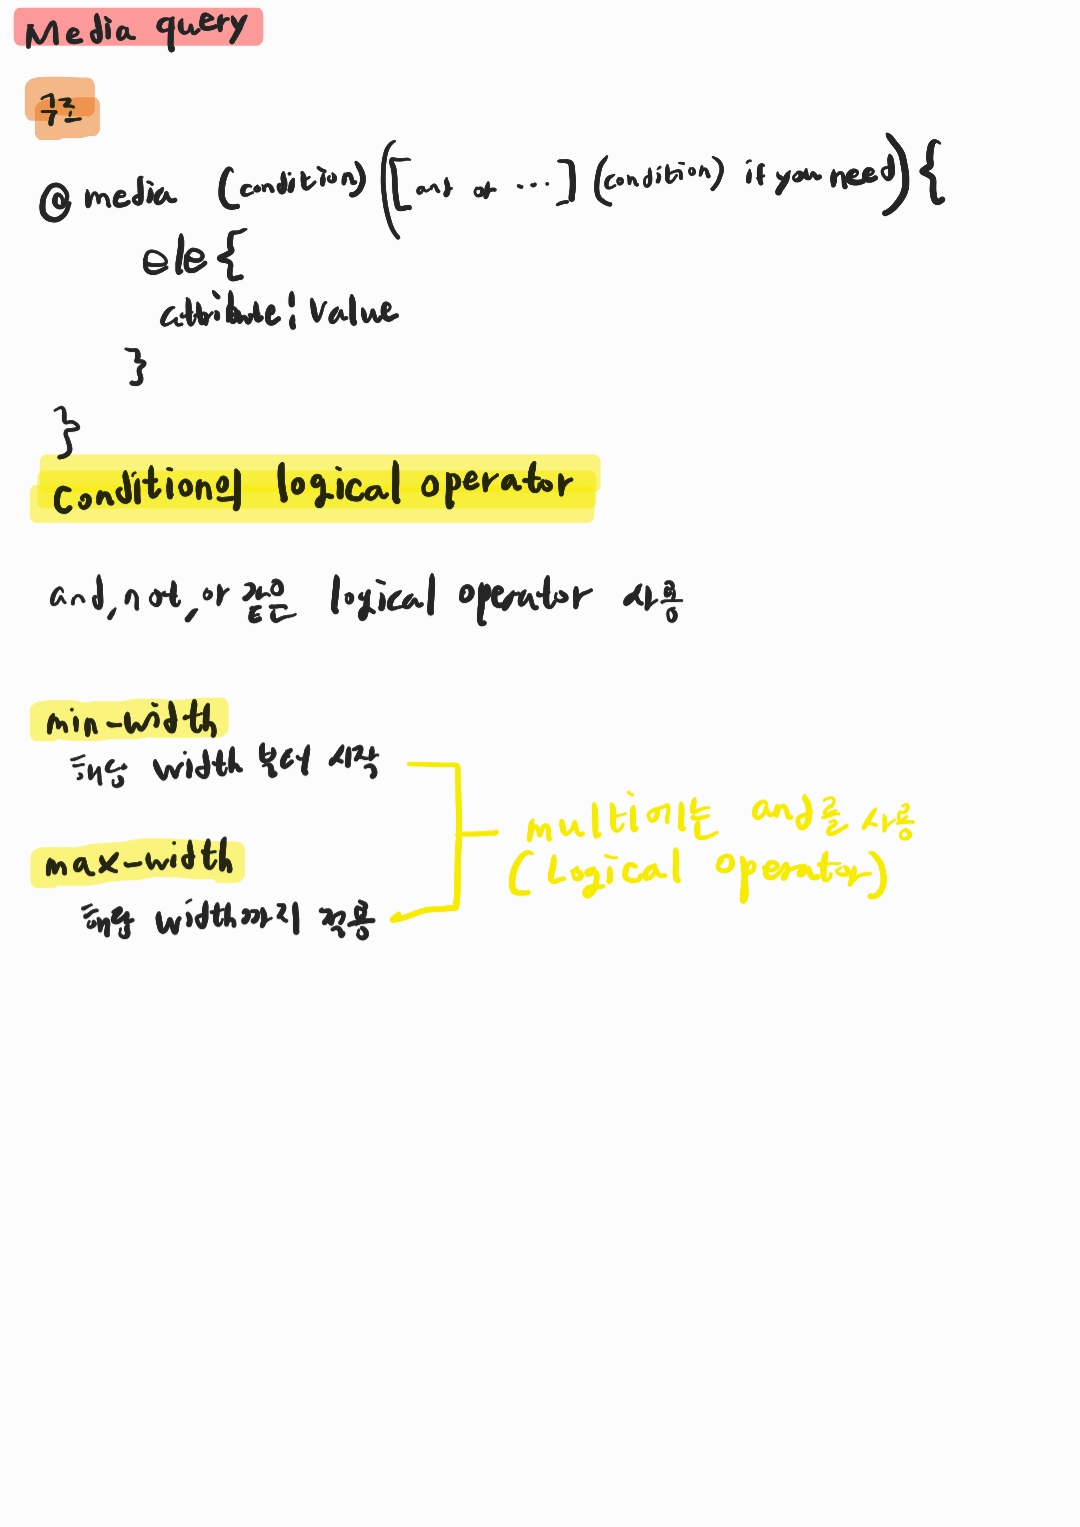 Media query
구조
@ media (condition) ([and or ...] (condition) if you need) {
ele {
attribute: Value
}
}
condition의 logical operator
and, not, or 같은 logical operator 사용
min-width
해당 width 부터 시작
max-width
해당 width까지 적용
multi에는 and를 사용
(Logical operator)